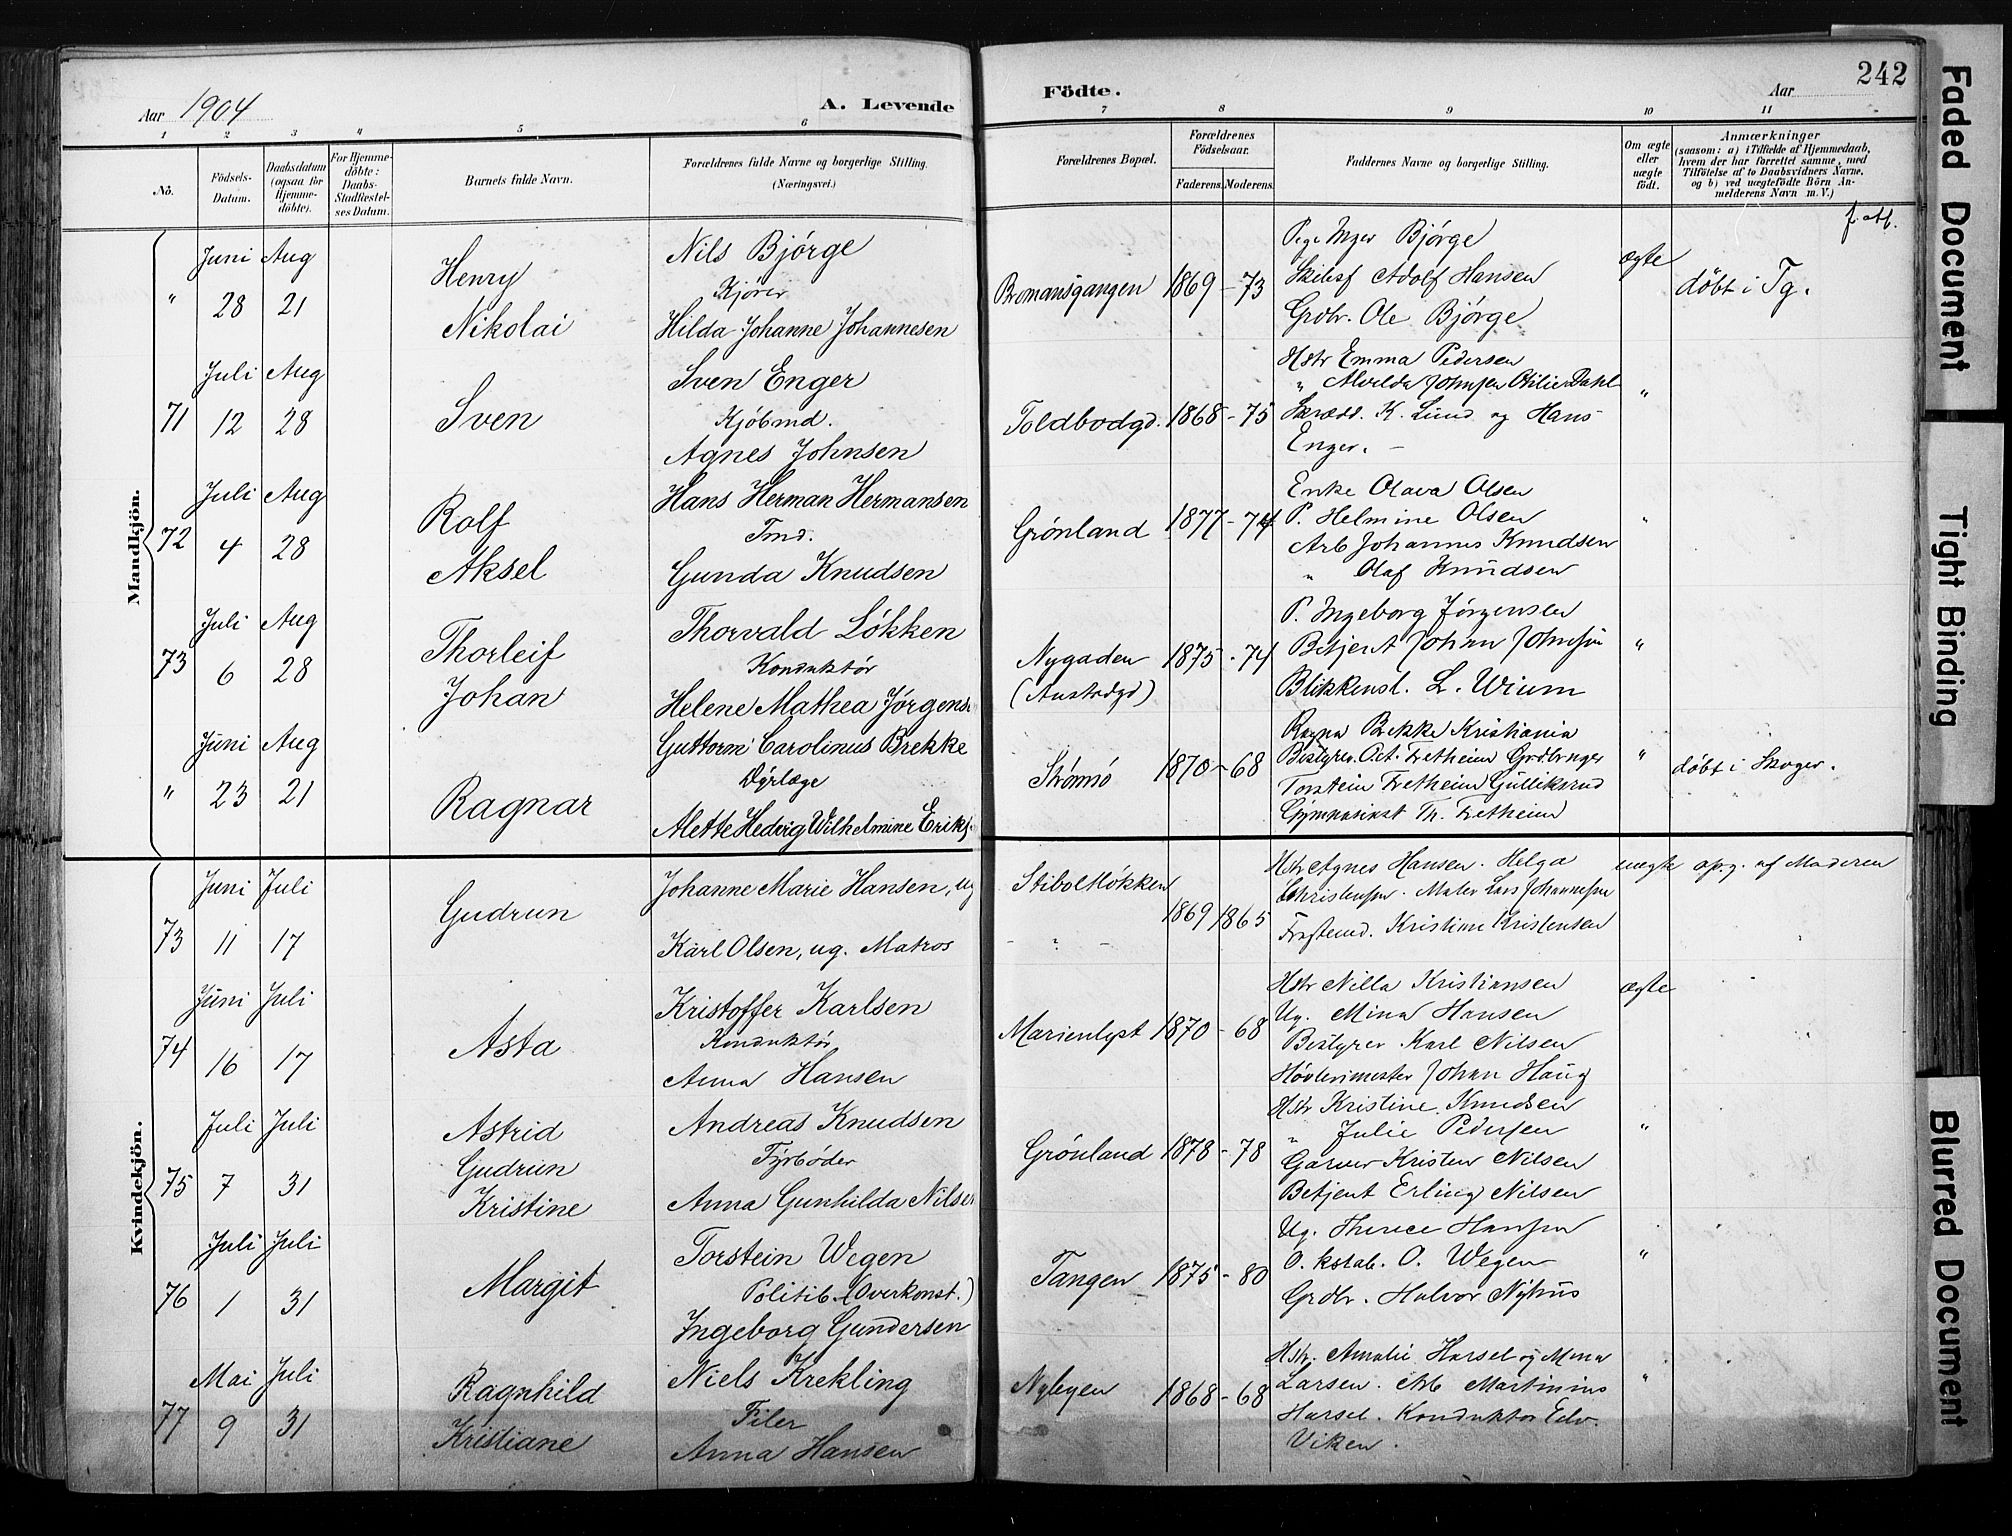 Aar 1904
A. Levende
Födte.
Aar
242
1 2 3 4 5 6 7 8 9 10 11
No.
Födsels-Datum.
Daabsdatum (ogsaa for Hjemme-döbte).
For Hjemme-döbte: Daabs-Stadfæstel-ses Datum.
Barnets fulde Navn.
Forældrenes fulde Navne og borgerlige Stilling.
(Næringsvei.)
Forældrenes Bopæl.
Forældrenes Födselsaar.
Faderens. Moderens.
Faddernes Navne og borgerlige Stilling.
Om ægte eller uægte født.
Anmærkninger
(saasom: a) i Tilfælde af Hjemmedaab, hvem der har forrettet samme, med Tilföielse af to Daabsvidners Navne, og b) ved uægtefödte Börn An-melderens Navn m. V.)
Mandkjön.
" Juni 28 Aug 21
Henry Nikolai
Nils Bjørge
Kjører
Hilda Johanne Johannesen
Bromansgangen 1869 - 73
Pige Inger Bjørge
Adolf Hansen
Grdbr. Ole Bjørge
ægte
døbt i Tg.
71 Juli 12 Aug 28
Sven
Sven Enger
Kjøbmd.
Agnes Johnsen
Toldbodgd. 1868 - 75
Hstr Emma Pedersen
" Alvilda Johnsen Otilie Dahl
Skrædd. K. Lund og Hans
Enger. -
"
72 Juli 4 Aug 28
Rolf Aksel
Hans Herman Hermansen
Tmd.
Gunda Knudsen
Grønland 1877 - 74
Enke Olava Olsen
P. Helmine Olsen
Arb Johannes Knudsen
" Olaf Knudsen
"
73 Juli 6 Aug 28
Thorleif Johan
Thorvald Løkken
Konduktør
Helene Mathea Jørgens
Nygaden 1875 - 74
P. Ingeborg Jørgensen
Betjent Johan Johnsen
Blikkensl. L. Wium
"
" Juni 23 Aug 21
Ragnar
Guttorm Carolinus Brekke
Dyrlæge
Alette Hedvig Wilhelmine Eriks
Strømsø 1870 - 68
Ragna Bekke Kristiania
Bestyrer Oct. Fretheim Grdbruger
Torstein Fretheim Gulliksrud
Gymnasiast Th. Fretheim
"
døbt i Skoger.
Kvindekjön.
73 Juni 11 Juli 17
Gudrun
Johanne Marie Hansen, ug
Karl Olsen, ug. Matros
Stiboltløkken
- " - 1869 1865
Hstr Agnes Hansen. Helga
Christensen. Maler Lars Johannesen
Kristian Kristensen
uægte opg. af Moderen
74 Juni 16 Juli 17
Asta
Kristoffer Karlsen
Konduktør
Anna Hansen
Marienlyst 1870 - 68
Hstr Nilla Kristiansen
Ug. Mina Hansen
Bestyrer Karl Nilsen
Høvlerimester Johan Haug
ægte
75 Juli 7 Juli 31
Astrid Gudrun Kristine
Andreas Knudsen
Fyrbøder
Anna Gunhilda Nilsen
Grønland 1878 - 78
Hstr Kristine Knudsen
" Julie Pedersen
Garver Kristen Nilsen
Betjent Erling Nilsen
"
76 Juli 1 Juli 31
Margit
Torstein Wegen
Politib. (Overkonst.)
Ingeborg Gundersen
Tangen 1875 - 80
Ug. Therece Hansen
O. kstab. O. Wegen
Grdbr. Halvor Nyhus
"
77 Mai 9 Juli 31
Ragnhild Kristiane
Niels Krekling
Filer
Anna Hansen
Nybyen 1868 - 68
Hstr. Amalie Harsel og Mina
Larsen. Arb Martinius
Harsel. Konduktør Edv.
Viken.
"
Faded Document
Tight Binding
Blurred Document